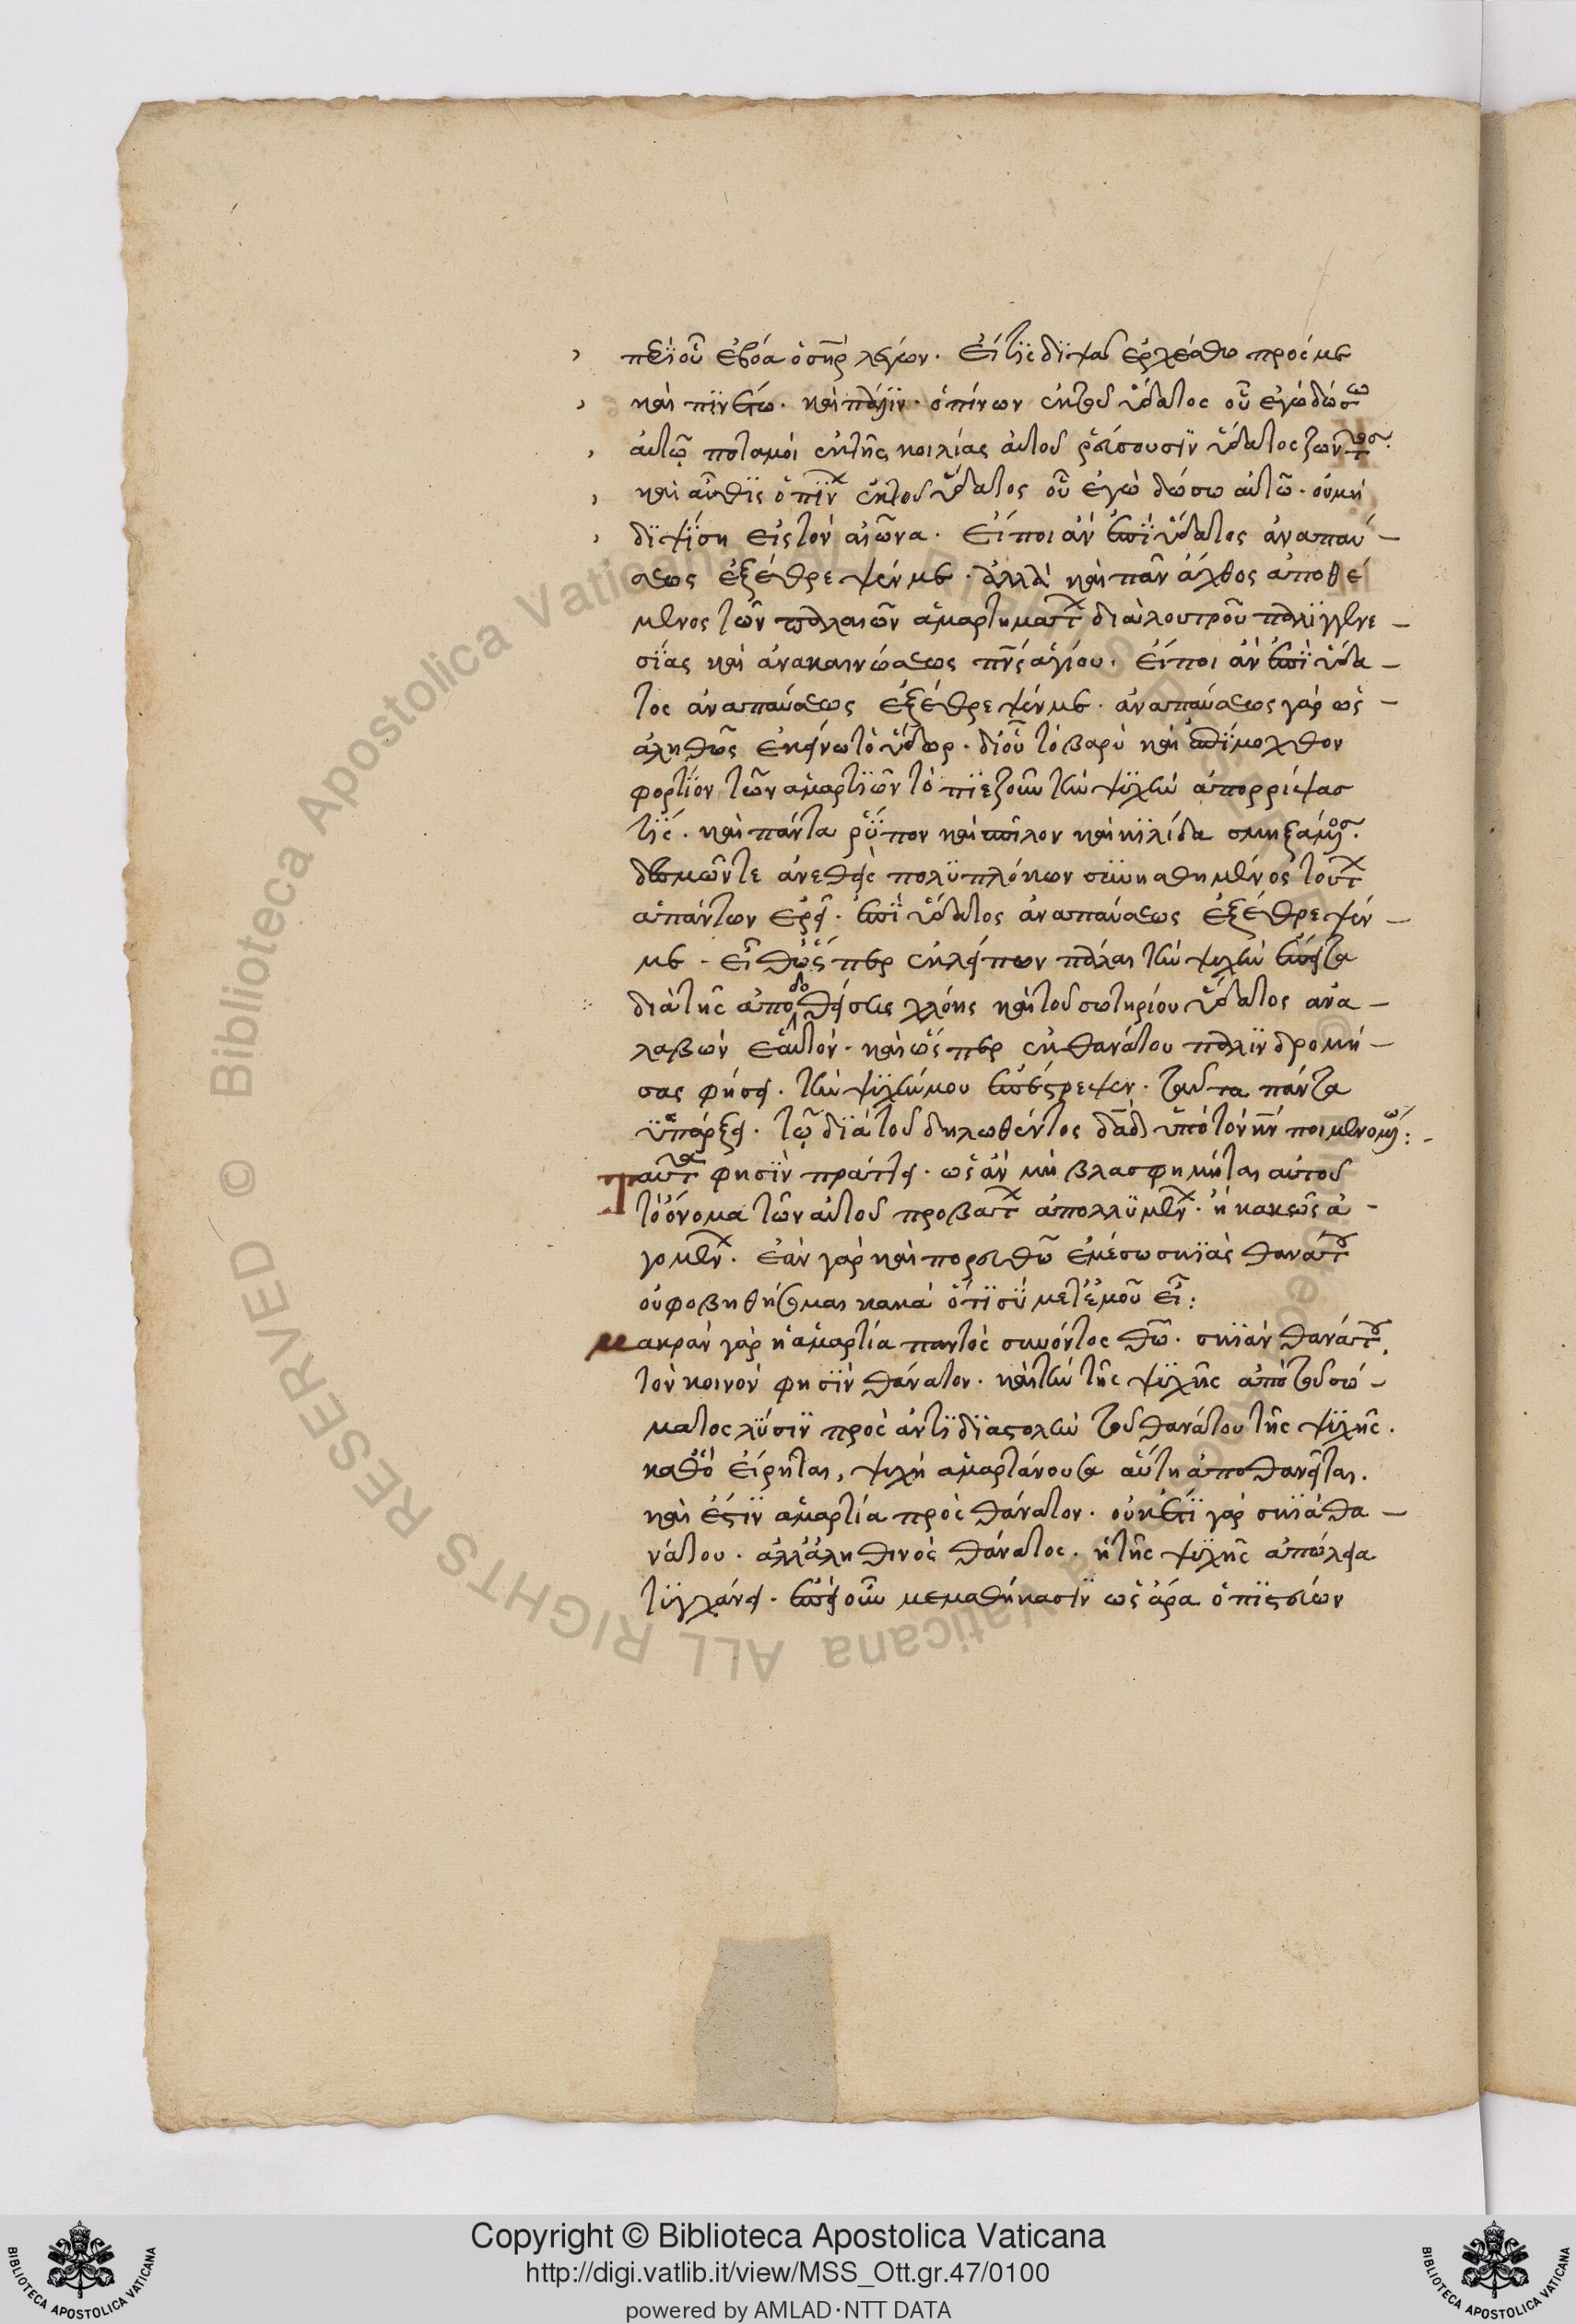 περὶ οὗ ἐβόα ὁ σηρ λέγων. εἴ τις διψᾶ ἐρχέσθω πρός με
καὶ πινέτω. καὶ πάλιν. ὁ πίνων ἐκ τοῦ ὕδατος οὗ ἐγὼ δώσω
αὐτῷ ποταμοὶ ἐκ τῆς κοιλίας αὐτοῦ ῥεύσουσιν ὕδατος ζῶντος.
καὶ αὖθις ὁ πίνων ἐκ τοῦ ὕδατος οὗ ἐγὼ δώσω αὐτῷ. οὐ μὴ
διψήση εἰς τὸν αἰῶνα. εἴποι ἂν ἐπὶ ὕδατος ἀναπαύ-
σεως ἐξέθρεψέν με. ἀλλὰ καὶ πᾶν ἄχθος ἀποθέ
μενος τῶν παλαιῶν ἁμαρτημάτων διὰ λουτροῦ παλιγγενε-
σίας καὶ ἀνακαινώσεως πνς ἁγίου. εἴποι ἂν ἐπὶ ὕδα-
τος ἀναπαύσεως ἐξέθρεψέν με. ἀναπαύσεως γὰρ ὡς-
ἀληθῶς ἐκεῖνο τὸ ὕδωρ. δι' οὗ τὸ βαρὺ καὶ ἐπίμοχθον
φορτίον τῶν ἁμαρτιῶν τὸ πιέζον τὴν ψυχὴν ἀπορρίψας
τίς. καὶ πάντα ῥύπον καὶ σπίλον καὶ κηλίδα σμηξάμενος.
δεσμῶν τε ἀνεθεὶς πολυπλόκων σεσωσμένος τούτων
ἁπάντων ἐρεῖ. ἐπὶ ὕδατος ἀναπαύσεως ἐξέθρεψέν-
με. εἶθ' ὥσπερ ἐκλείπων πάλαι τὴν ψυχὴν ἔπειτα
διὰ τῆς ἀποδοθείσης χλόης καὶ τοῦ σωτηρίου ὕδατος ἀνα-
λαβὼν ἑαυτόν. καὶ ὥσπερ ἐκ θανάτου παλινδρομή-
σας φήσει. τὴν ψυχήν μου ἐπέστρεψεν. ταῦτα πάντα
ὑπάρξει. τῷ διὰ τοῦ δηλωθέντος δαδ ὑπὸ τὸν κν ποιμενομένω:-
Ταῦτα φησὶν πράττει. ὡς ἂν μὴ βλασφημῆται αὐτοῦ
τὸ ὄνομα τῶν αὐτοῦ προβάτων ἀπολλυμένων. ἢ κακῶς ἀ-
γομένων. ἐὰν γὰρ καὶ πορευθῶ ἐν μέσω σκιᾶς θανάτου
οὐ φοβηθήσομαι κακὰ ὅτι σὺ μετ' ἐμοῦ εἶ:
Μακρὰν γὰρ ἡ ἁμαρτία παντὸς συνόντος θῶ. σκιὰν θανάτου.
τὸν κοινόν φησιν θάνατον. καὶ τὴν τῆς ψυχῆς ἀπὸ τοῦ σώ-
ματος λύσιν πρὸς ἀντιδιαστολὴν τοῦ θανάτου τῆς ψυχῆς.
καθ' ὃ εἴρηται, ψυχὴ ἁμαρτάνουσα αὕτη ἀποθανεῖται.
καὶ ἔστιν ἁμαρτία πρὸς θάνατον. οὐκέτι γὰρ σκιὰ θα-
νάτου. ἀλλ' ἀληθινὸς θάνατος. ἡ τῆς ψυχῆς ἀπώλεια
τυγχάνει. ἐπεὶ οὖν μεμαθήκασιν ὡς ἄρα ὁ πιστεύων
Copyright © Biblioteca Apostolica Vaticana
http://digi.vatlib.it/view/MSS_Ott.gr.47/0100
powered by AMLAD·NTT DATA